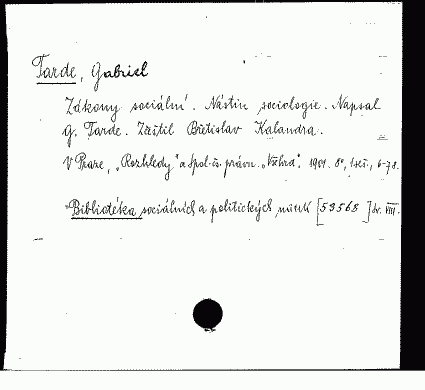 Tarde, Gabriel
Zákony sociální. Nástin sociologie. Napsal
G. Tarde. Zčeštil Břetislav Kalandra.
V Praze, „Rozhledy" a Spol. čs. právn. „Všehrd". 1901. 8°, 6-78.
Bibliotéka sociálních a politických nauk [59568] sv. VIII.